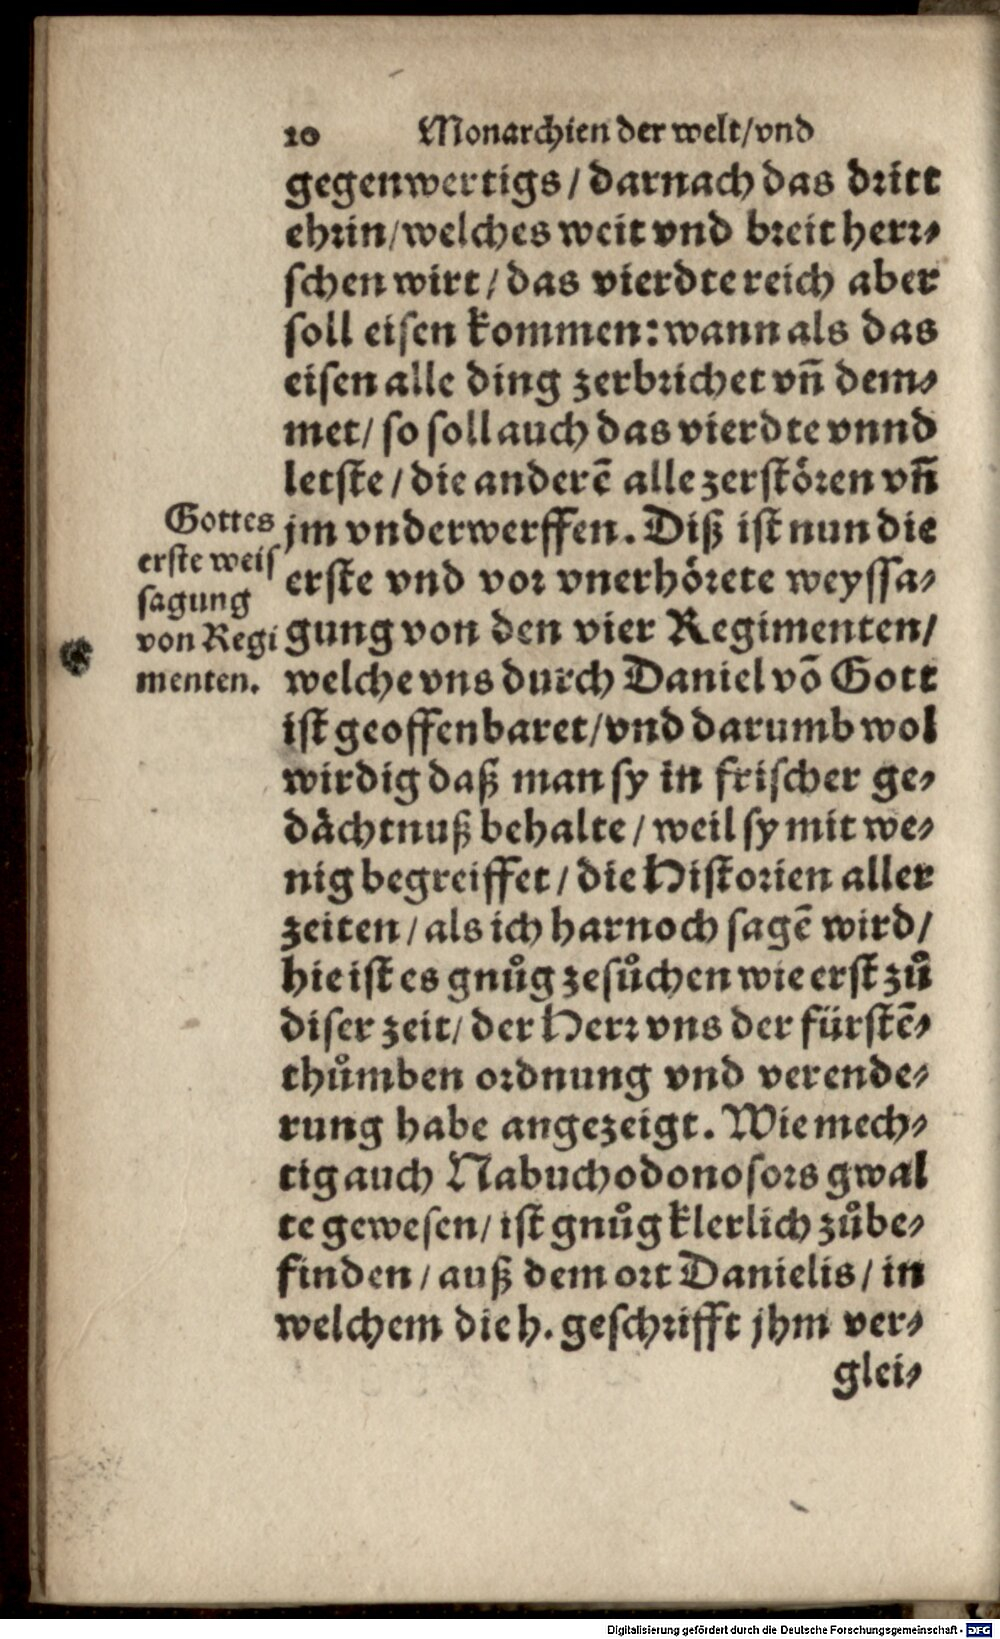 10 Monarchien der welt/vnd
gegenwertigs/darnach das dritt
ehrin/welches weit vnd breit herr⸗
schen wirt/das vierdte reich aber
soll eisen kommen:wann als das
eisen alle ding zerbrichet vn̄ dem⸗
met/so soll auch das vierdte vnnd
letste/die anderē alle zerstören vn̄
jm vnderwerffen. Diß ist nun die
erste vnd vor vnerhörete weyssa⸗
gung von den vier Regimenten/
welche vns durch Daniel vō Gott
ist geoffenbaret/vnd darumb wol
wirdig daß man sy in frischer ge⸗
dächtnuß behalte/weil sy mit we⸗
nig begreiffet/die Historien aller
zeiten/als ich harnoch sagē wird/
hie ist es gnůg zesůchen wie erst zů
diser zeit/der Herr vns der fürstē⸗
thůmben ordnung vnd verende⸗
rung habe angezeigt. Wie mech⸗
tig auch Nabuchodonosors gwal
te gewesen/ist gnůg klerlich zůbe⸗
finden/auß dem ort Danielis/in
welchem die h. geschrifft jhm ver⸗
glei⸗
Gottes
erste weis
sagung
von Regi
menten.
Digitalisierung gefördert durch die Deutsche Forschungsgemeinschaft - DFG